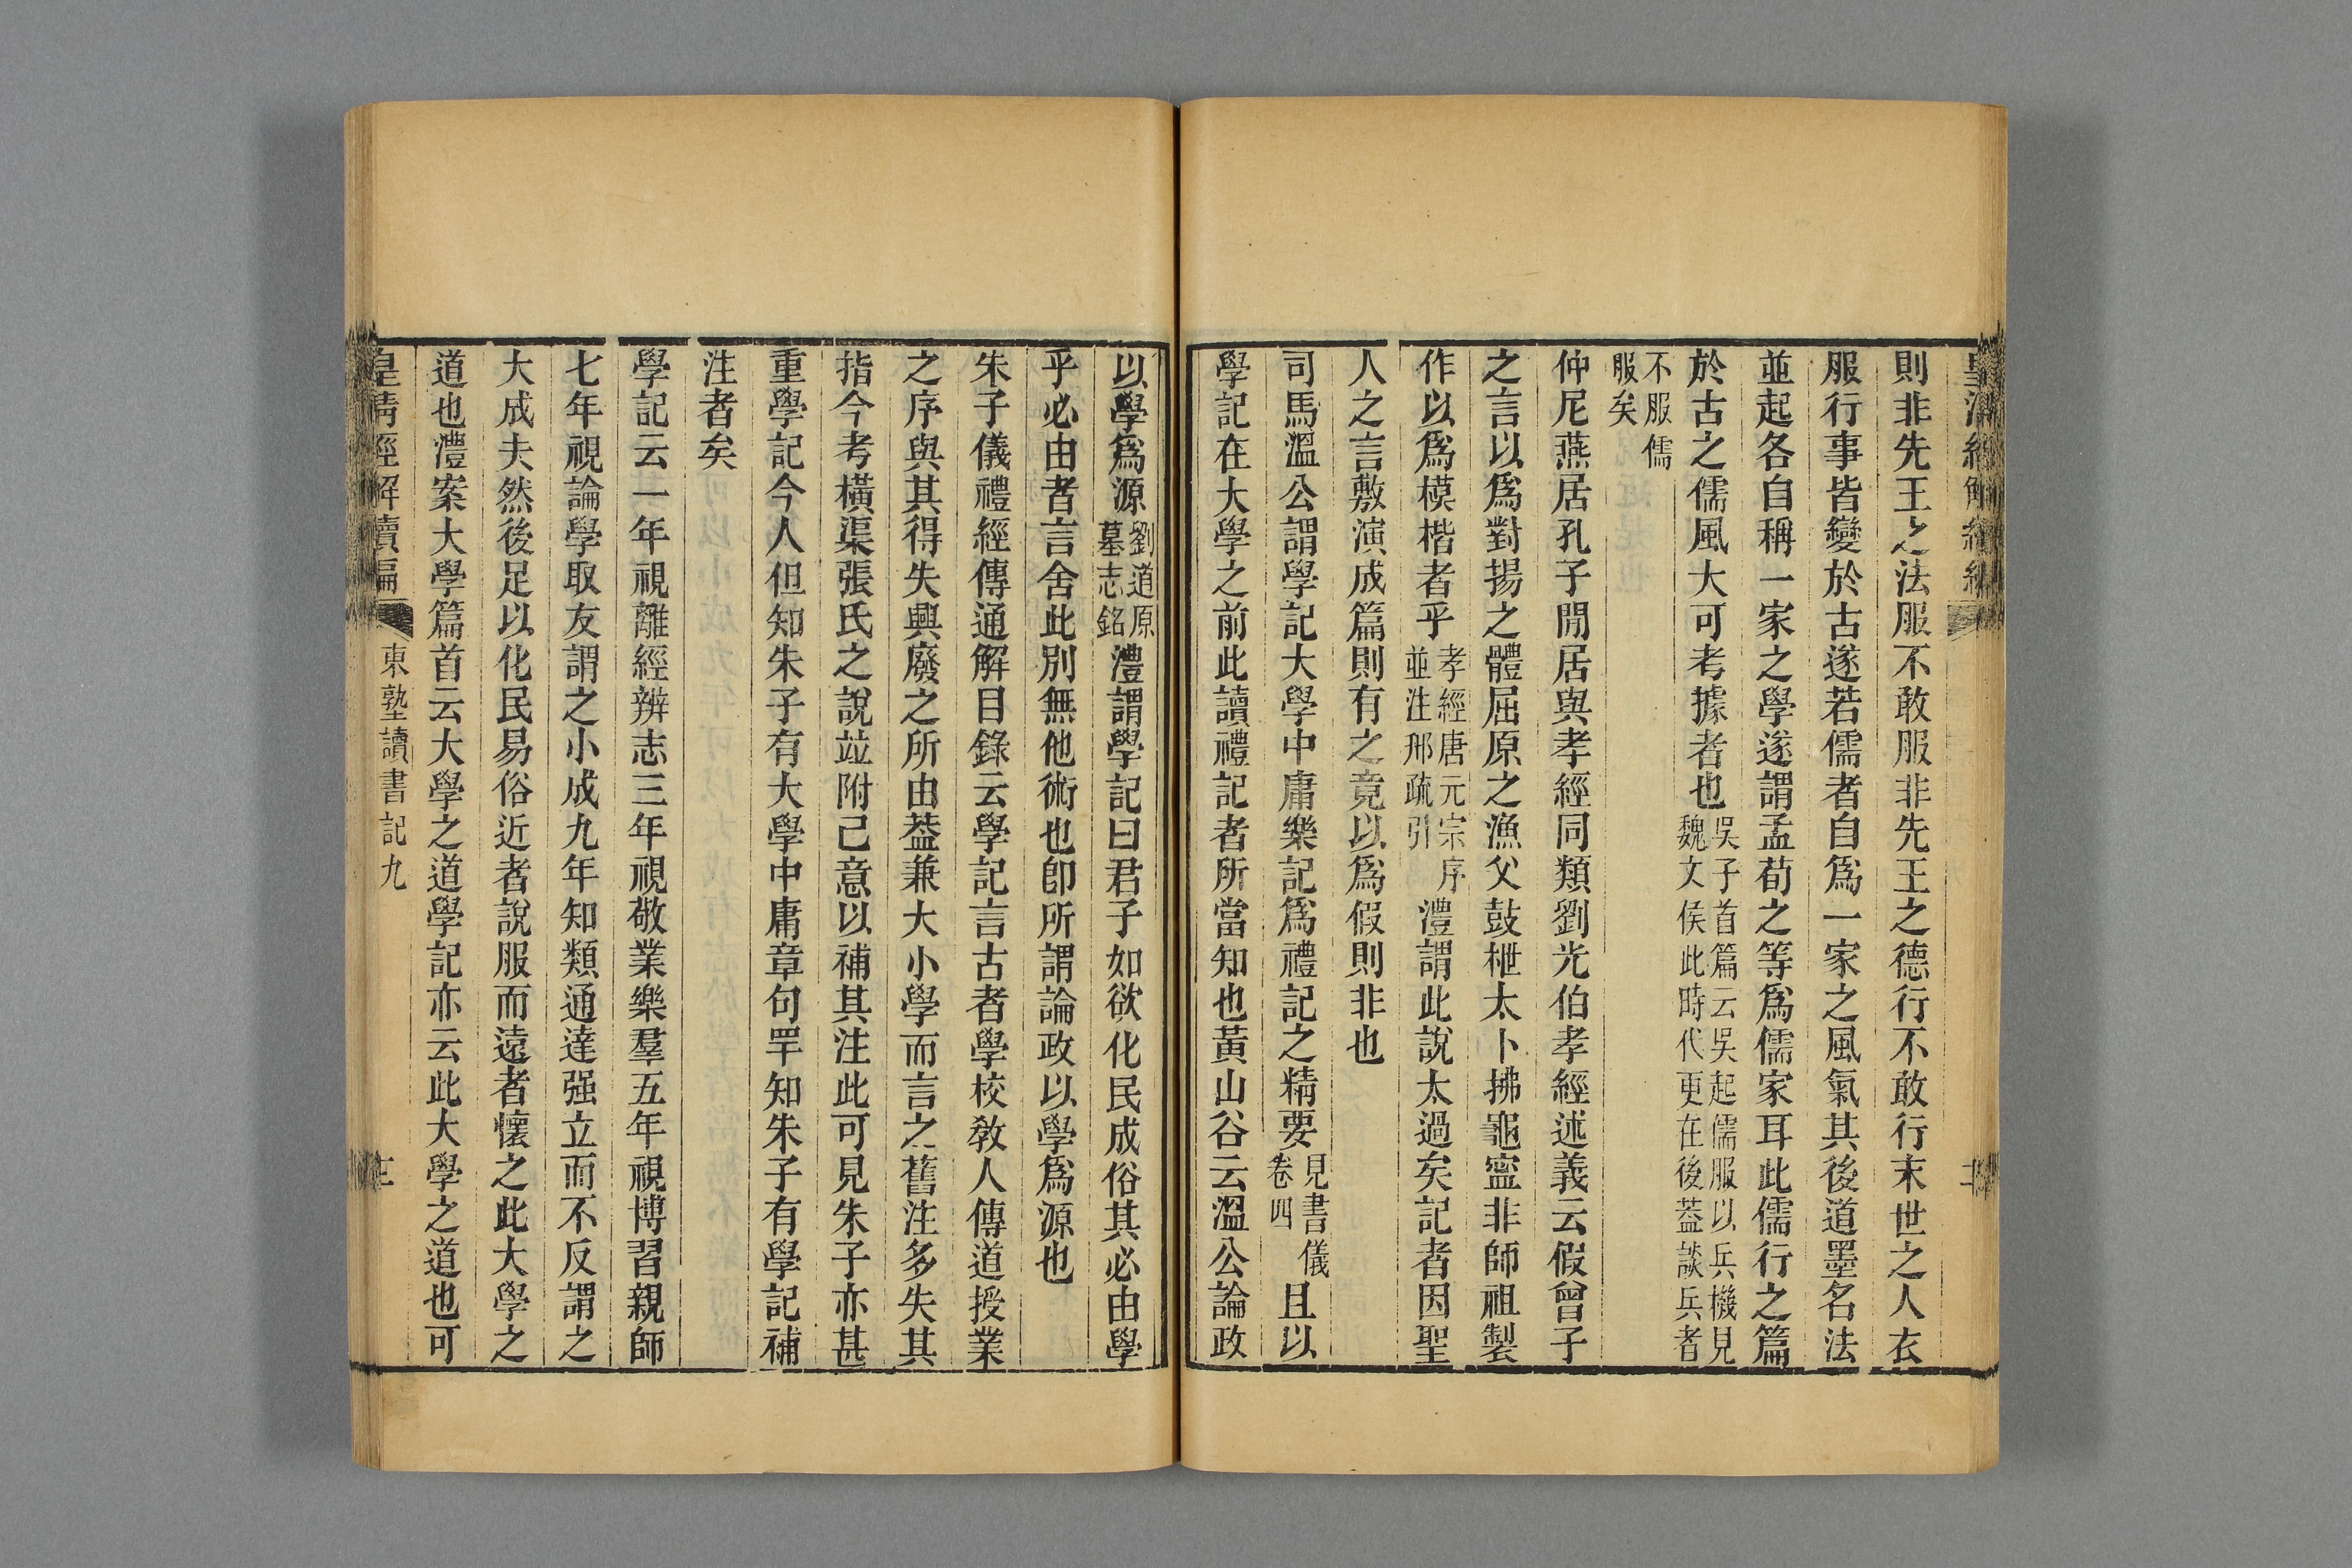 則非先王之法服不敢服非先王之德行不敢行末世之人衣
服行事皆變於古遂若儒者自爲一家之風氣其後道墨名法
並起各自稱一家之學遂謂孟荀之等爲儒家耳此儒行之篇
於古之儒風大可考據者也吳子首篇云吳起儒服以兵機見魏文侯此時代更在後葢談兵者
不服儒服矣
仲尼燕居孔子閒居與孝經同類劉光伯孝經述義云假曾子
之言以爲對揚之體屈原之漁父鼓枻太卜拂龜寍非師祖製
作以爲模楷者乎孝經唐元宗序並注邢疏引澧謂此說太過矣記者因聖
人之言敷演成篇則有之竟以爲假則非也
司馬溫公謂學記大學中庸樂記爲禮記之精要見書儀卷四且以
學記在大學之前此讀禮記者所當知也黃山谷云溫公論政
以學爲源劉道原墓志銘澧謂學記曰君子如欲化民成俗其必由學
乎必由者言舍此別無他術也卽所謂論政以學爲源也
朱子儀禮經傳通解目錄云學記言古者學校敎人傳道授業
之序與其得失興廢之所由葢兼大小學而言之舊注多失其
指今考橫渠張氏之說竝附己意以補其注此可見朱子亦甚
重學記今人但知朱子有大學中庸章句罕知朱子有學記補
注者矣
學記云一年視離經辨志三年視敬業樂羣五年視博習親師
七年視論學取友謂之小成九年知類通達强立而不反謂之
大成夫然後足以化民易俗近者說服而遠者懷之此大學之
道也澧案大學篇首云大學之道學記亦云此大學之道也可
皇淸經解續編 東塾讀書記九